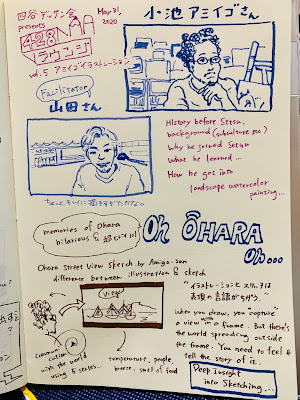 四谷デッサン会
presents
428 AA
ラウンジ
Mar 31,
2020
vol.5 アミイゴイラストレーション
Facilitator
山田さん
小池アミイゴさん
History before Setsu,
background (subculture etc.)
Why he joined Setsu
What he learned...
How he got into
landscape watercolor
painting...
memories of Ohara
hilarious &
Oh ŌHARA
Oh...
Ohara Street View sketch by Amigo-san
difference between illustration & sketch
View
"イラストレーションとスケッチは
表現の言語がちがう。"
When you draw, you capture
a view in a frame. But there's
the world spreading outside
the frame. You need to feel &
tell the story of it.
communi
cation
with the world
using 5 senses...
temperature, people,
breeze, smell of food
Deep Insight
into Sketching...